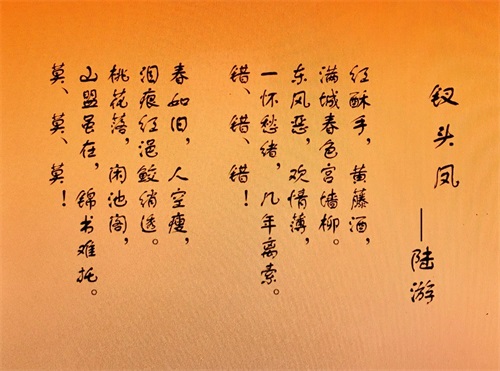 钗头凤 ——陆游
红酥手，黄藤酒，
满城春色宫墙柳。
东风恶，欢情薄，
一怀愁绪，几年离索。
错、错、错！
春如旧，人空瘦，
泪痕红浥鲛绡透。
桃花落，闲池阁，
山盟虽在，锦书难托。
莫、莫、莫！